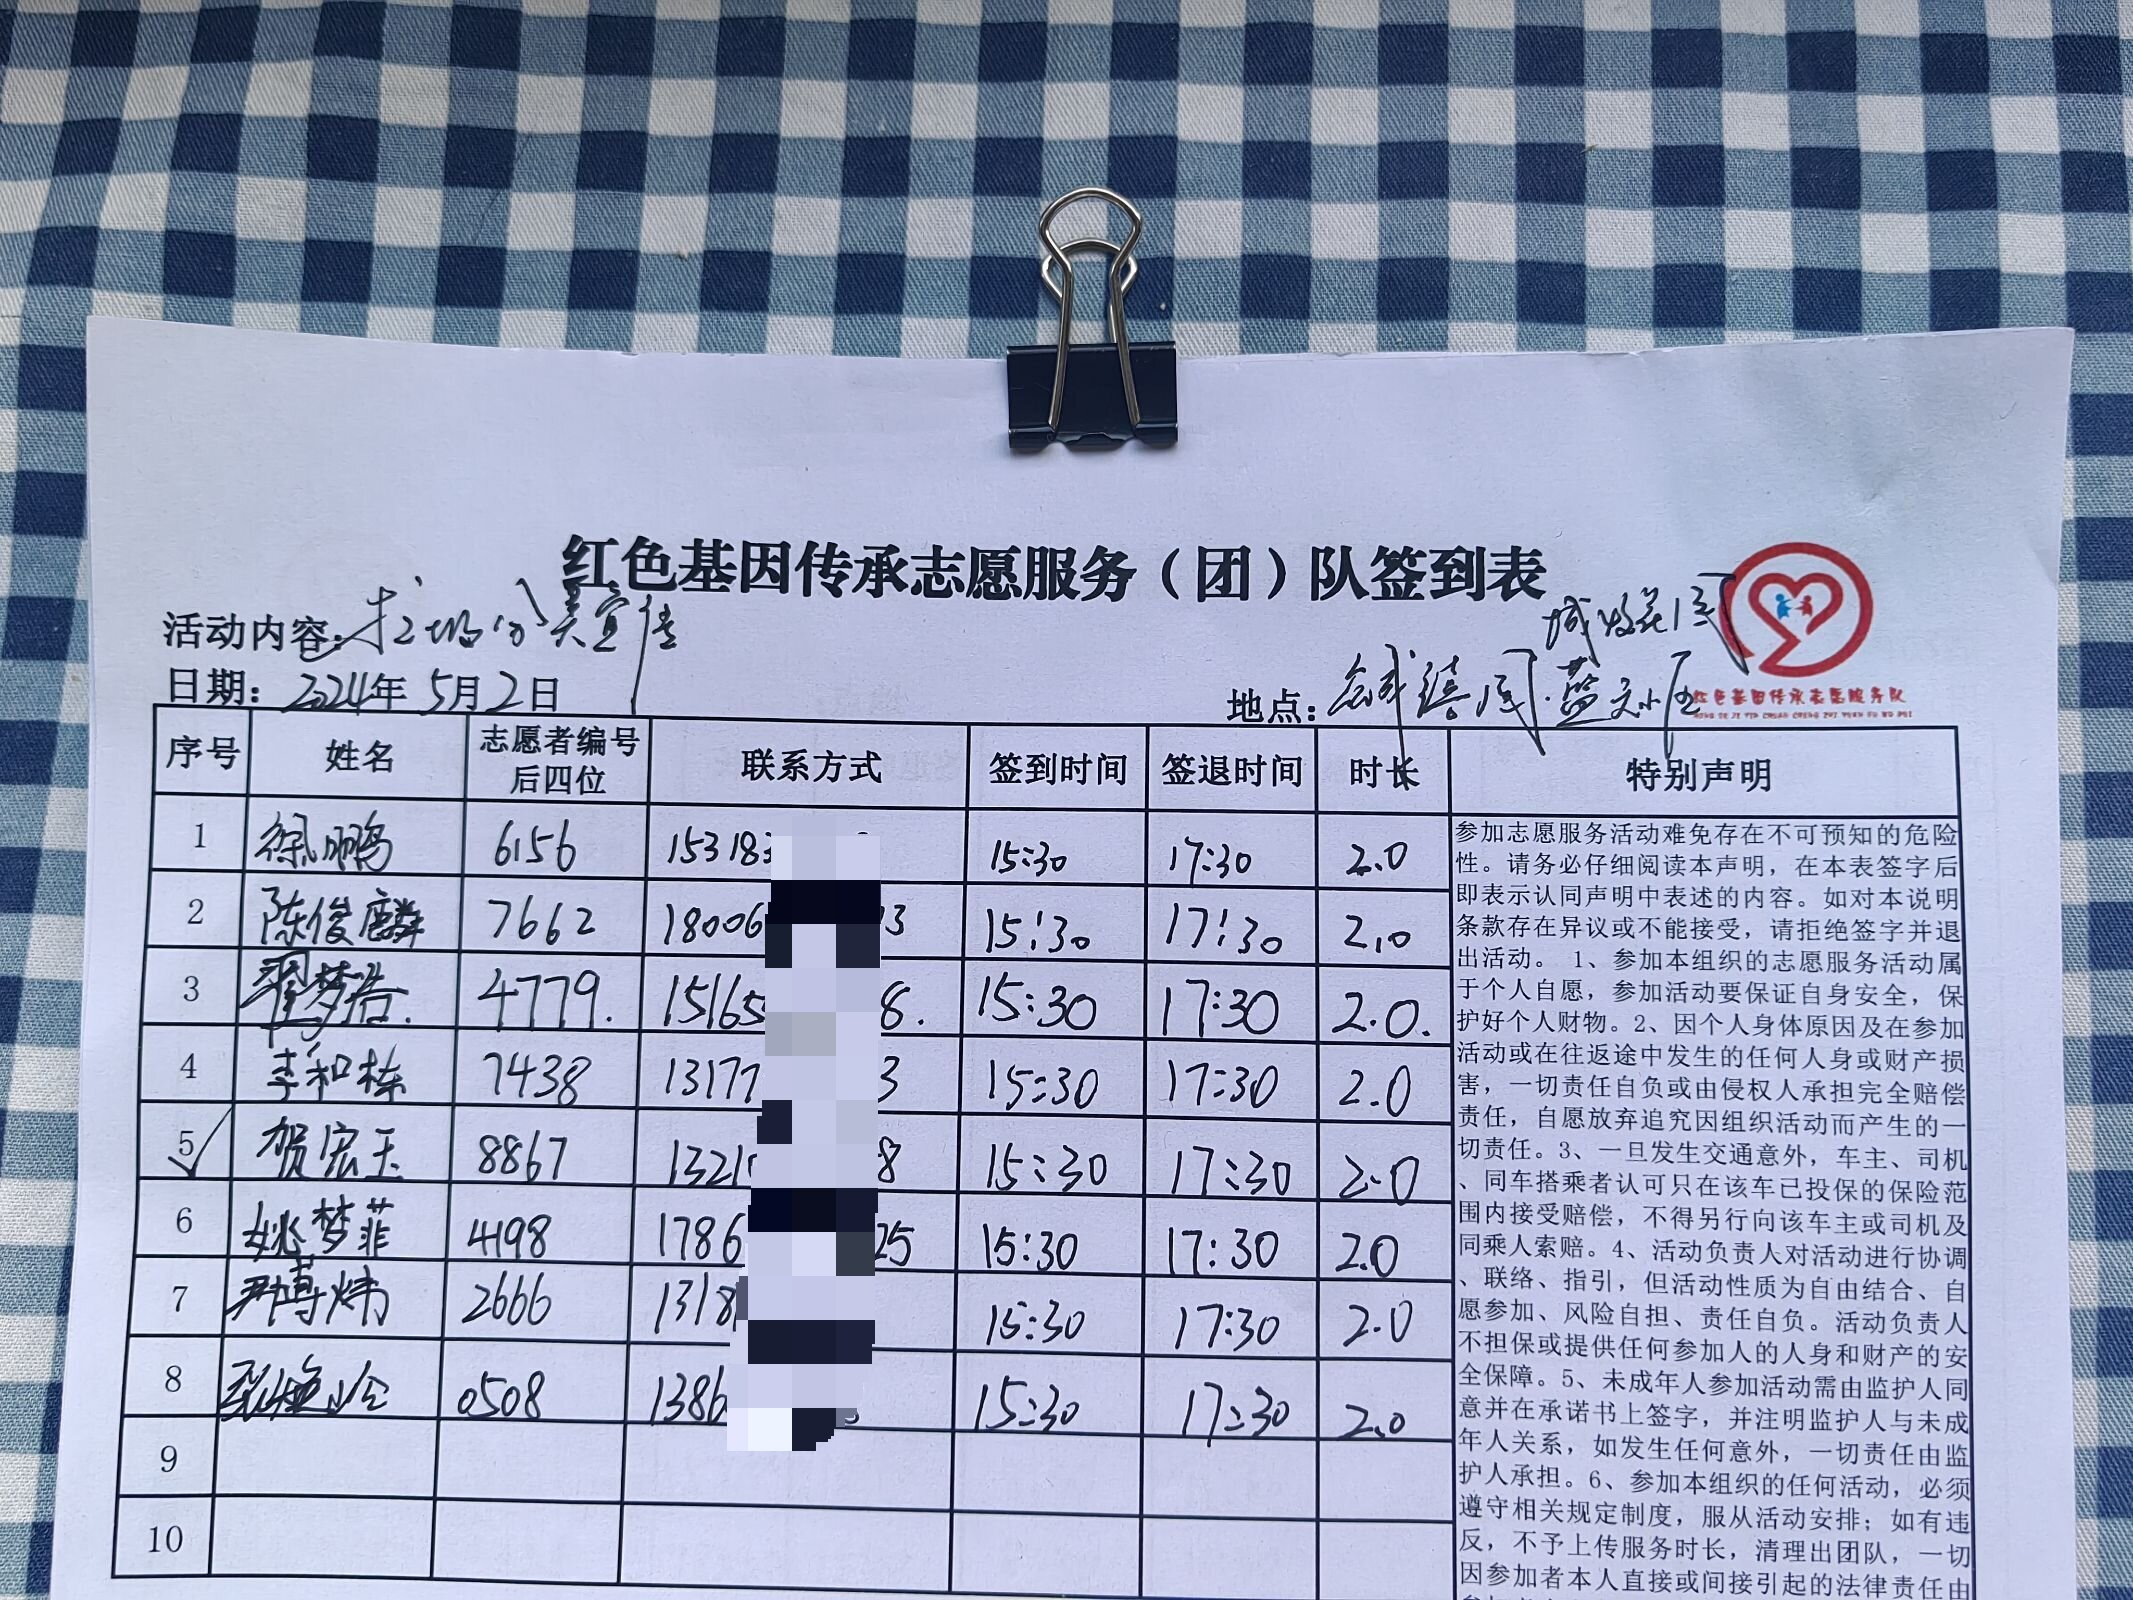 红色基因传承志愿服务（团）队签到表
活动内容：垃圾分类宣传
日期：2024年5月2日
地点：
红色基因传承志愿服务队
HONG SE JI YIN CHUAN CHENG ZHI YUAN FU WU DUI
序号 姓名 志愿者编号后四位 联系方式 签到时间 签退时间 时长 特别声明
1 徐鹏 6156 15318 15:30 17:30 2.0
2 陈俊麟 7662 18006 13 15:30 17:30 2.0
3 翟梦浩. 4779. 15165 8. 15:30 17:30 2.0.
4 李和栋 7438 13177 3 15:30 17:30 2.0
5 贺宏玉 8867 1321 8 15:30 17:30 2.0
6 姚梦菲 4498 1786 25 15:30 17:30 2.0
7 尹博炜 2666 1318 15:30 17:30 2.0
8 0508 1386 15:30 17:30 2.0
9
10
参加志愿服务活动难免存在不可预知的危险
性。请务必仔细阅读本声明，在本表签字后
即表示认同声明中表述的内容。如对本说明
条款存在异议或不能接受，请拒绝签字并退
出活动。 1、参加本组织的志愿服务活动属
于个人自愿，参加活动要保证自身安全，保
护好个人财物。2、因个人身体原因及在参加
活动或在往返途中发生的任何人身或财产损
害，一切责任自负或由侵权人承担完全赔偿
责任，自愿放弃追究因组织活动而产生的一
切责任。3、一旦发生交通意外，车主、司机
、同车搭乘者认可只在该车已投保的保险范
围内接受赔偿，不得另行向该车主或司机及
同乘人索赔。4、活动负责人对活动进行协调
、联络、指引，但活动性质为自由结合、自
愿参加、风险自担、责任自负。活动负责人
不担保或提供任何参加人的人身和财产的安
全保障。5、未成年人参加活动需由监护人同
意并在承诺书上签字，并注明监护人与未成
年人关系，如发生任何意外，一切责任由监
护人承担。6、参加本组织的任何活动，必须
遵守相关规定制度，服从活动安排；如有违
反，不予上传服务时长，清理出团队，一切
因参加者本人直接或间接引起的法律责任由